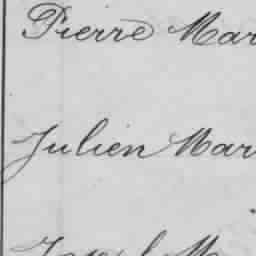 Pierre Mar
Julien Mar